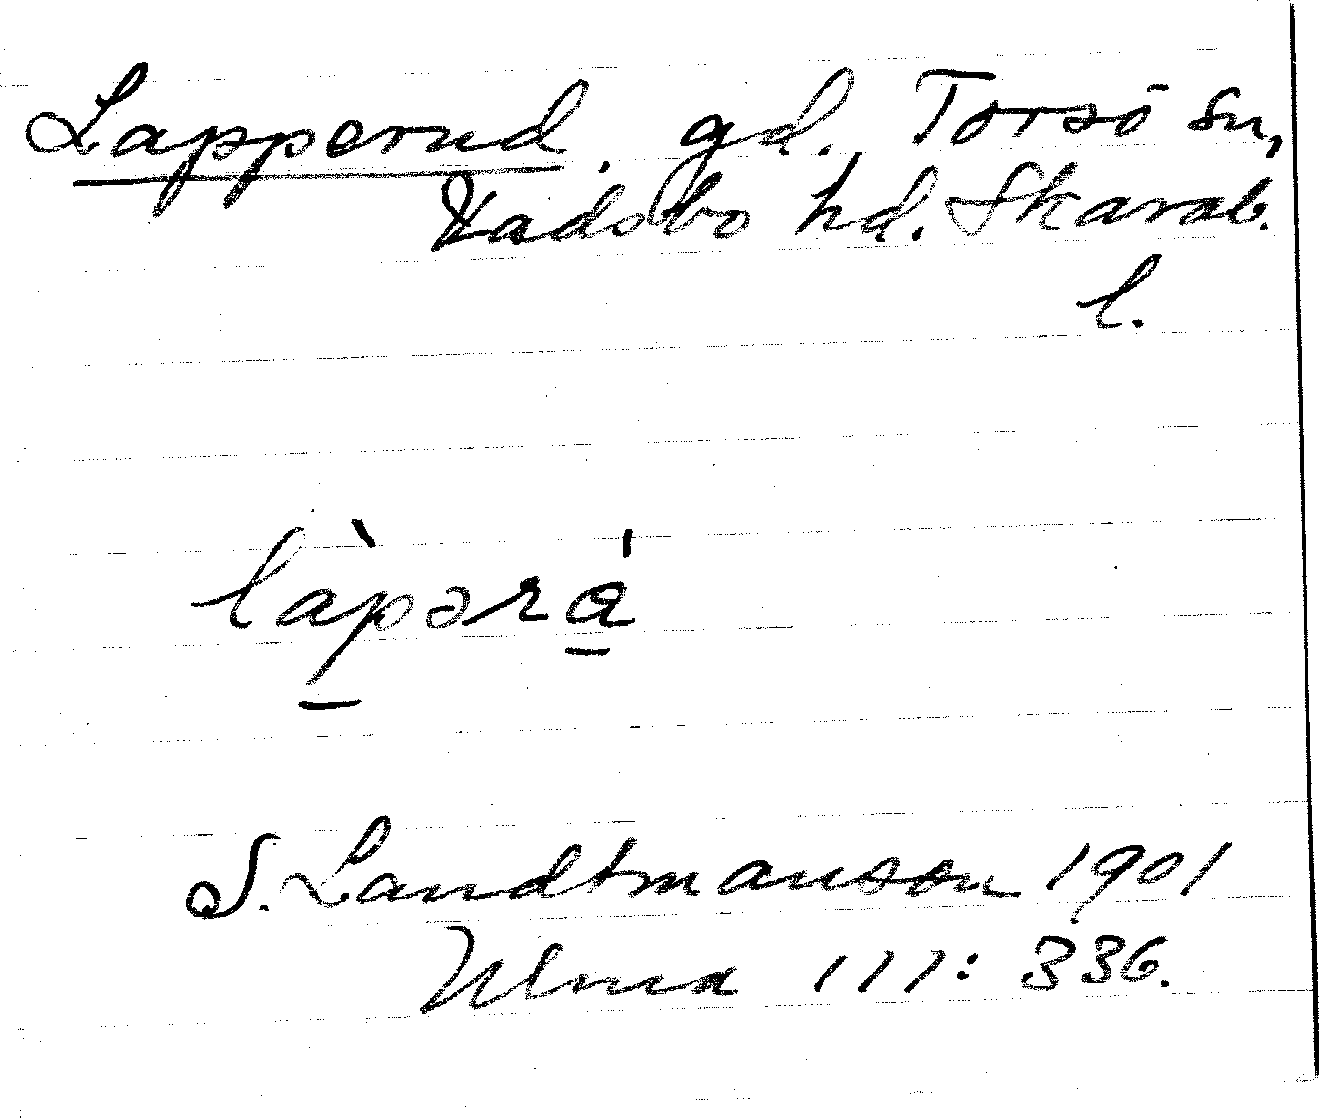 Lapperud. gd. Torsö sn,
Vadsbo hd. Skarab.
l.
là̱pərá̱
S. Landtmanson 1901
Ulma 111: 336.